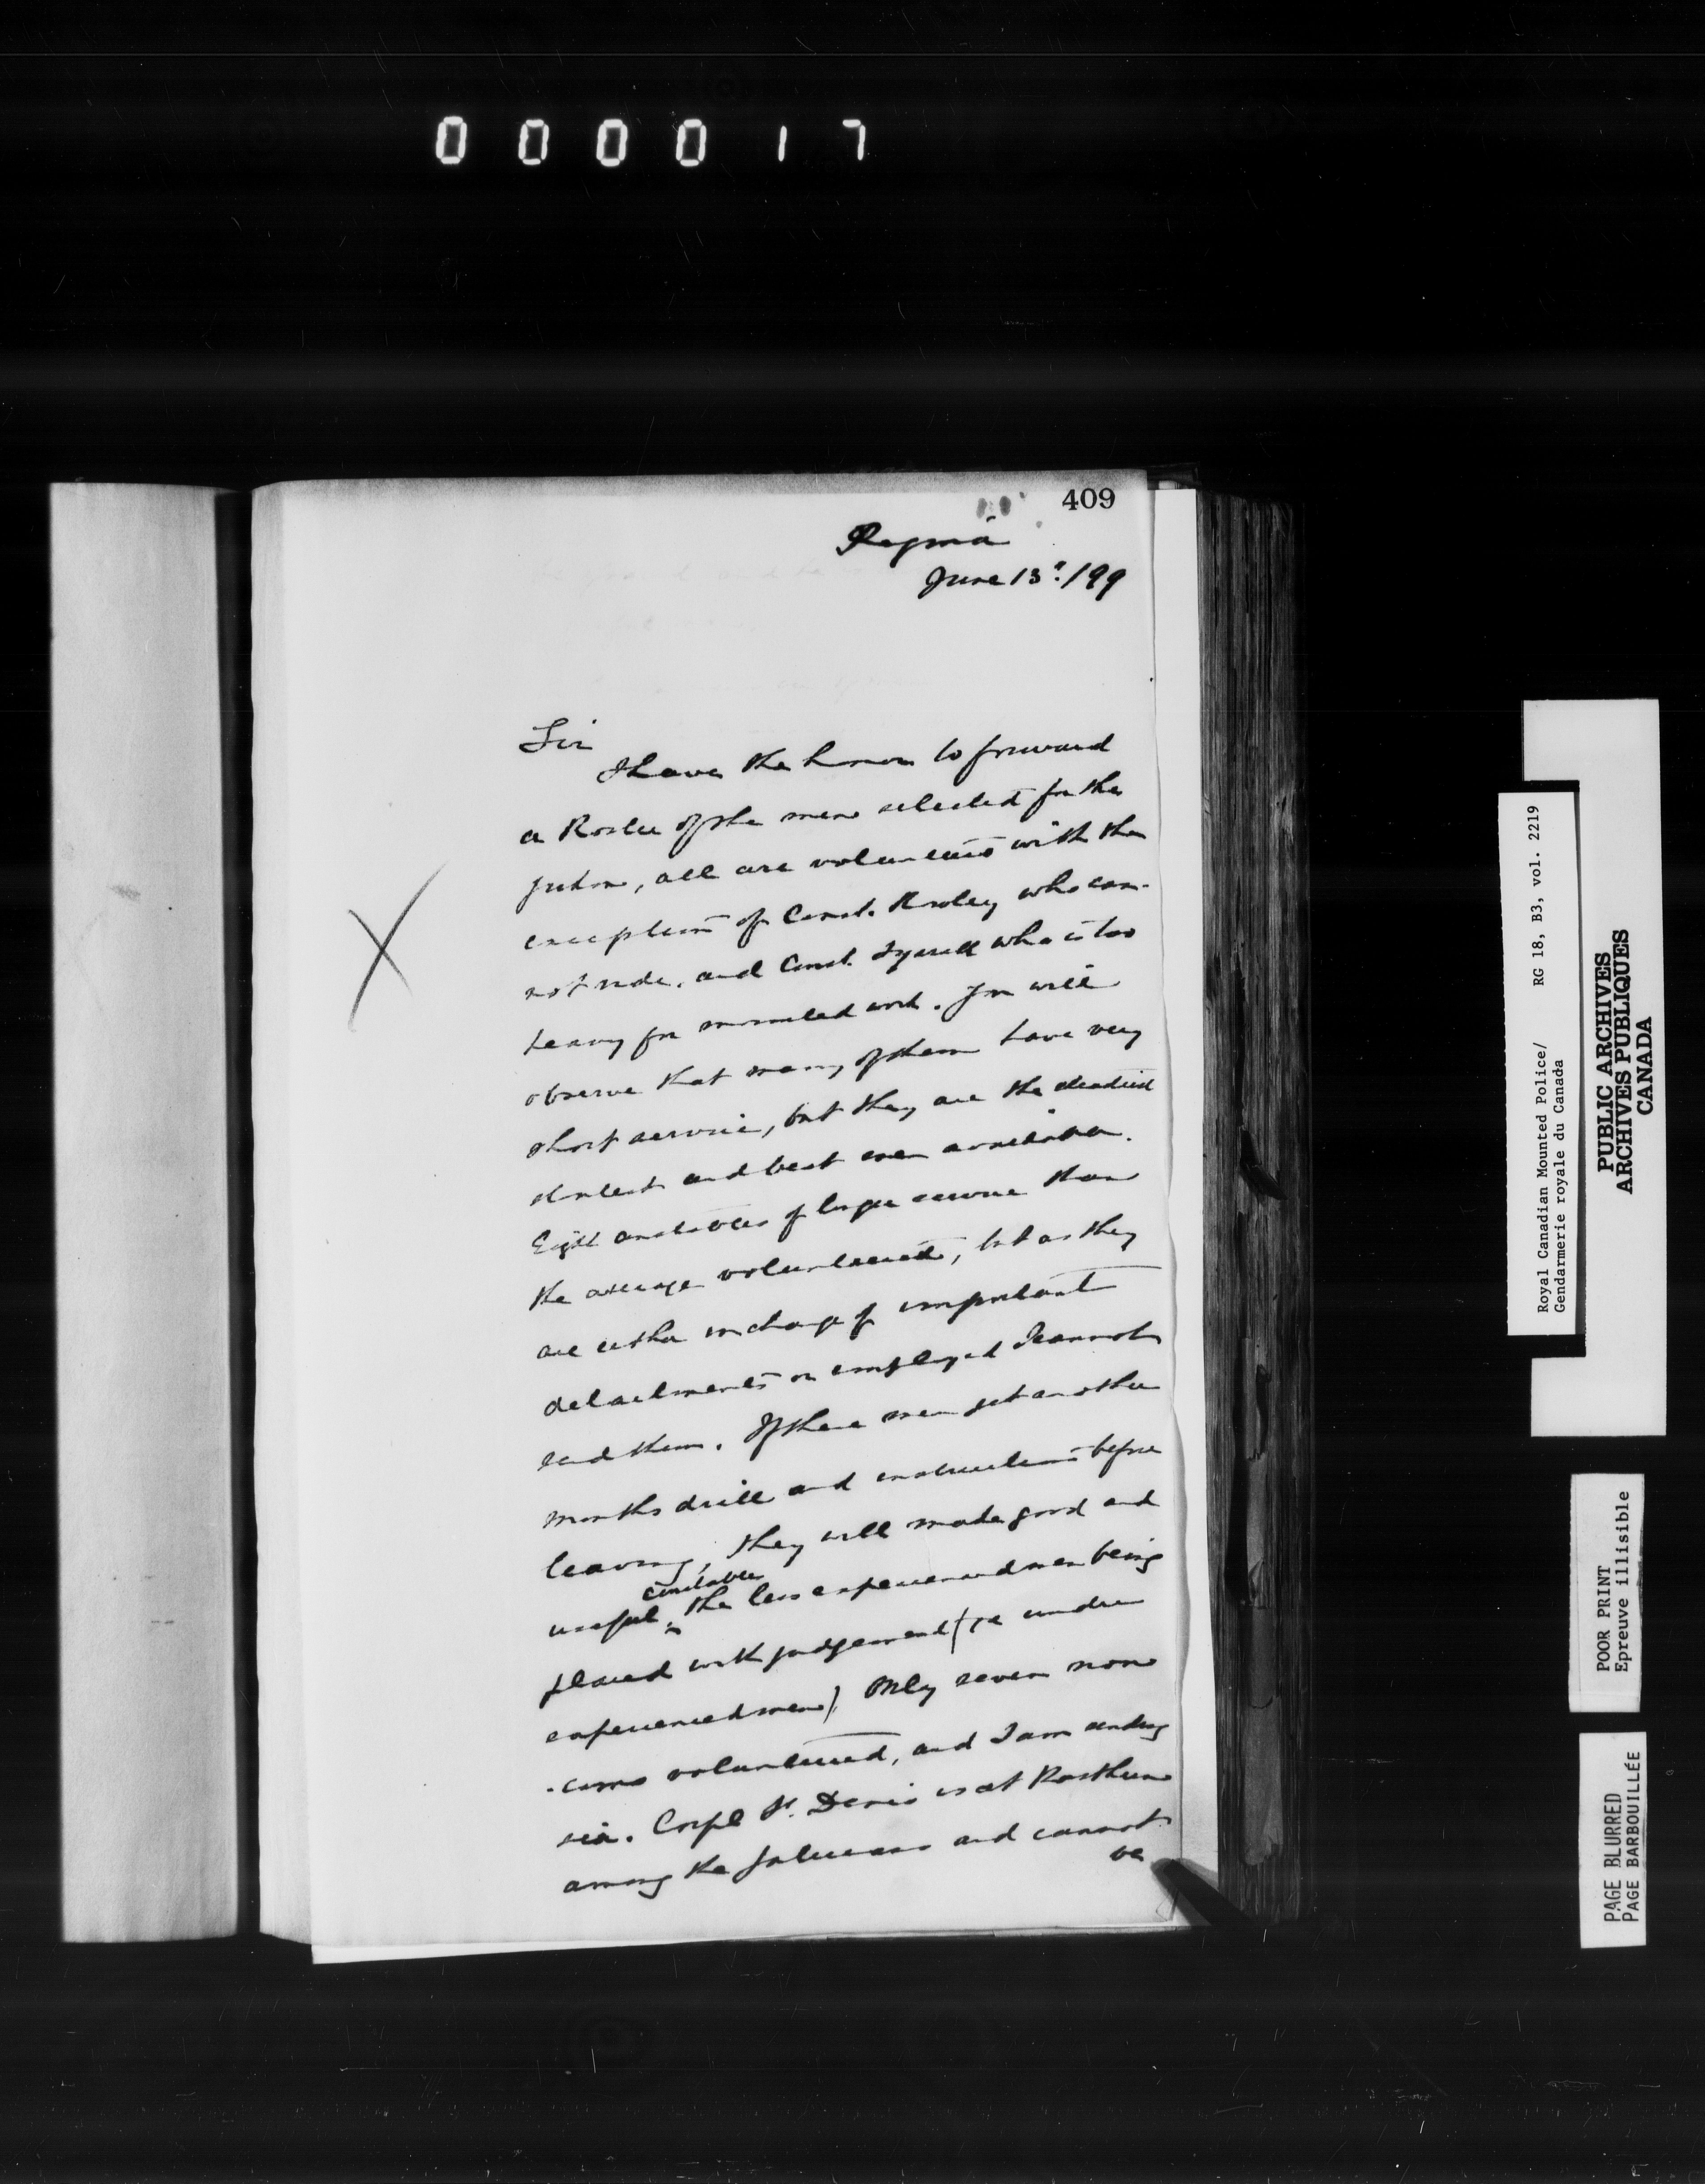 000017
409
Regina
June 13th/99
Sir
I have the honor to forward
a Roster of the men selected for the
Yukon, all are volunteers with the
exception of Const. who can-
not ride, and Const. Tyrrell who is too
heavy for mounted work. You will
observe that many of them have very
short service, but they are the steadiest
and best men available.
Eight constables of longer service than
the average volunteered, but as they
are either in charge of important
detachments or employed I cannot
send them. If these men get another
months drill and instructions before
leaving, they will make good and
useful constables the less experienced men being
placed with judgement (ie under
experienced men). Only seven non
-coms volunteered, and I am sending
six. Corpl St. Denis is at Rosthern
among the and cannot
be
Royal Canadian Mounted Police/ RG 18, B3, vol. 2219
Gendarmerie royale du Canada
PUBLIC ARCHIVES
ARCHIVES PUBLIQUES
CANADA
POOR PRINT
Epreuve illisible
PAGE BLURRED
PAGE BARBOUILLÉE